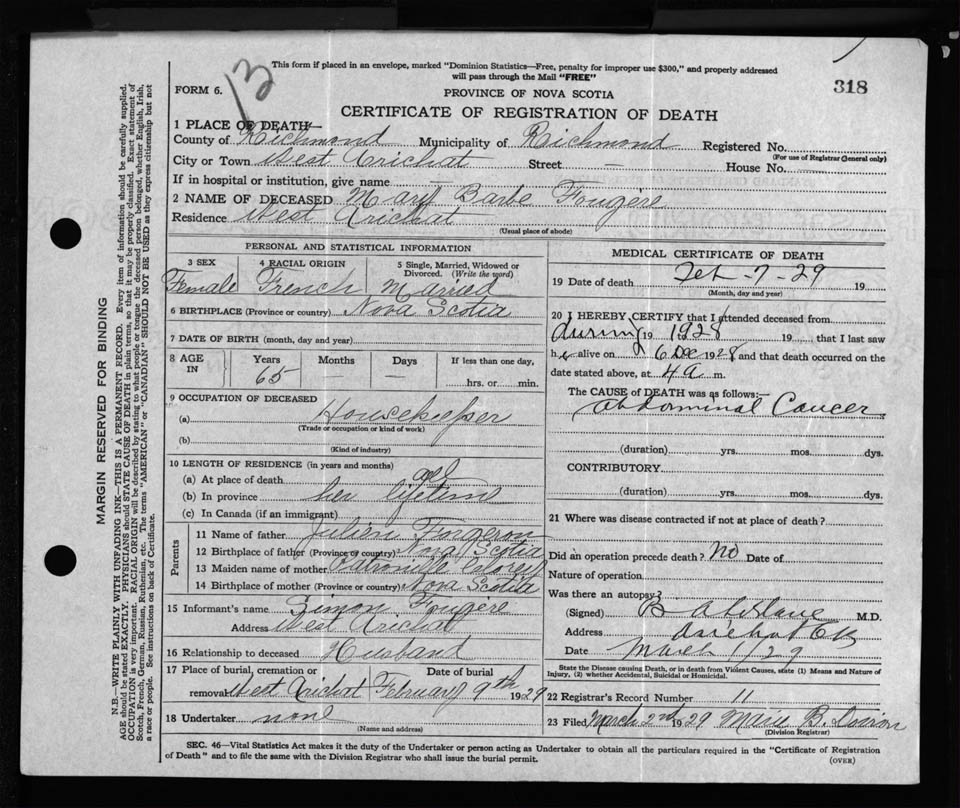 13
This form if placed in an envelope, marked "Dominion Statistics—Free, penalty for improper use $300," and properly addressed
will pass through the Mail "FREE"
318
FORM 6.
PROVINCE OF NOVA SCOTIA
CERTIFICATE OF REGISTRATION OF DEATH
1 PLACE OF DEATH—
County of Richmond Municipality of Richmond Registered No.
(For use of Registrar General only)
City or Town West Arichat Street — House No.
If in hospital or institution, give name —
2 NAME OF DECEASED Mary Barbe Fougère
Residence West Arichat
(Usual place of abode)
PERSONAL AND STATISTICAL INFORMATION
3 SEX 4 RACIAL ORIGIN 5 Single, Married, Widowed or Divorced. (Write the word)
Female French Married
6 BIRTHPLACE (Province or country) Nova Scotia
7 DATE OF BIRTH (month, day and year)
8 AGE IN Years Months Days If less than one day,
65 — — hrs. or min.
9 OCCUPATION OF DECEASED
(a) Housekeeper
(Trade or occupation or kind of work)
(b)
(Kind of industry)
10 LENGTH OF RESIDENCE (in years and months)
(a) At place of death all
(b) In province her lifetime
(c) In Canada (if an immigrant)
Parents
11 Name of father Julien
12 Birthplace of father (Province or country) Nova Scotia
13 Maiden name of mother
14 Birthplace of mother (Province or country) Nova Scotia
15 Informant's name Simon Fougere
Address West Arichat
16 Relationship to deceased Husband
17 Place of burial, cremation or removal West Arichat Date of burial February 9th 1929
18 Undertaker none
(Name and address)
MEDICAL CERTIFICATE OF DEATH
19 Date of death Feb-7-29 19
(Month, day and year)
20 I HEREBY CERTIFY that I attended deceased from
during 19 1928 19 that I last saw
her alive on 6 Dec 1928 and that death occurred on the
date stated above, at 4 a m.
The CAUSE of DEATH was as follows:—
abdominal Cancer
(duration) yrs. mos. dys.
CONTRIBUTORY
(duration) yrs. mos. dys.
21 Where was disease contracted if not at place of death?
Did an operation precede death? No Date of
Nature of operation
Was there an autopsy?
(Signed) M.D.
Address Arichat CB
Date March 1/29
State the Disease causing Death, or in death from Violent Causes, state (1) Means and Nature of
Injury, (2) whether Accidental, Suicidal or Homicidal.
22 Registrar's Record Number 11
23 Filed March 2nd 1929 Marie B.
(Division Registrar)
SEC. 46—Vital Statistics Act makes it the duty of the Undertaker or person acting as Undertaker to obtain all the particulars required in the "Certificate of Registration
of Death" and to file the same with the Division Registrar who shall issue the burial permit.
(OVER)
MARGIN RESERVED FOR BINDING
N.B.—WRITE PLAINLY WITH UNFADING INK—THIS IS A PERMANENT RECORD. Every item of information should be carefully supplied.
AGE should be stated EXACTLY. PHYSICIANS should STATE CAUSE OF DEATH in plain terms, so that it may be properly classified. Exact statement of
OCCUPATION is very important. RACIAL ORIGIN will be described by stating to what people or tongue the deceased person belonged, whether English, Irish,
Scotch, French, German, Russian, Ruthenian, etc. The terms "AMERICAN" or "CANADIAN" SHOULD NOT BE USED as they express citizenship but not
a race or people. See instructions on back of Certificate.